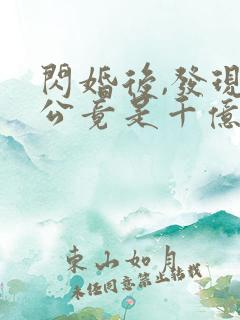 閃婚後,發現
公竟是千億
東山如月
未經同意禁止轉載